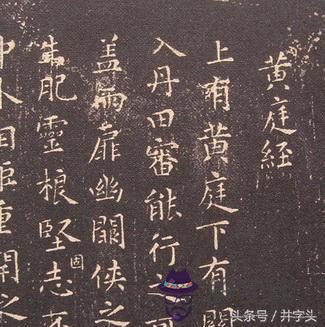 黃庭經
上有黃庭下有關
入丹田審能行之
盖兩扉幽闕俠之
生肥靈根堅固志
中外相距重閉之
头条号 / 井字头